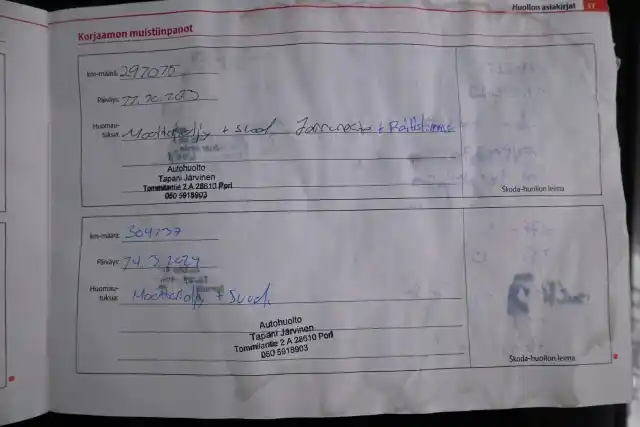 Huollon asiakirjat 57
Korjaamon muistiinpanot
km-määrä: 297075
Päiväys:
Huomau- Moottoriöljy + suod. Jarruneste + Raitisilma
tuksia:
Autohuolto
Tapani Järvinen
Tommilantie 2 A 28610 Pori
050 5918903
Skoda-huollon leima
km-määrä: 304737
Päiväys: 14.3.2024
Huomau- Moottoriöljy + suod.
tuksia:
Autohuolto
Tapani Järvinen
Tommilantie 2 A 28610 Pori
050 5918903
Skoda-huollon leima